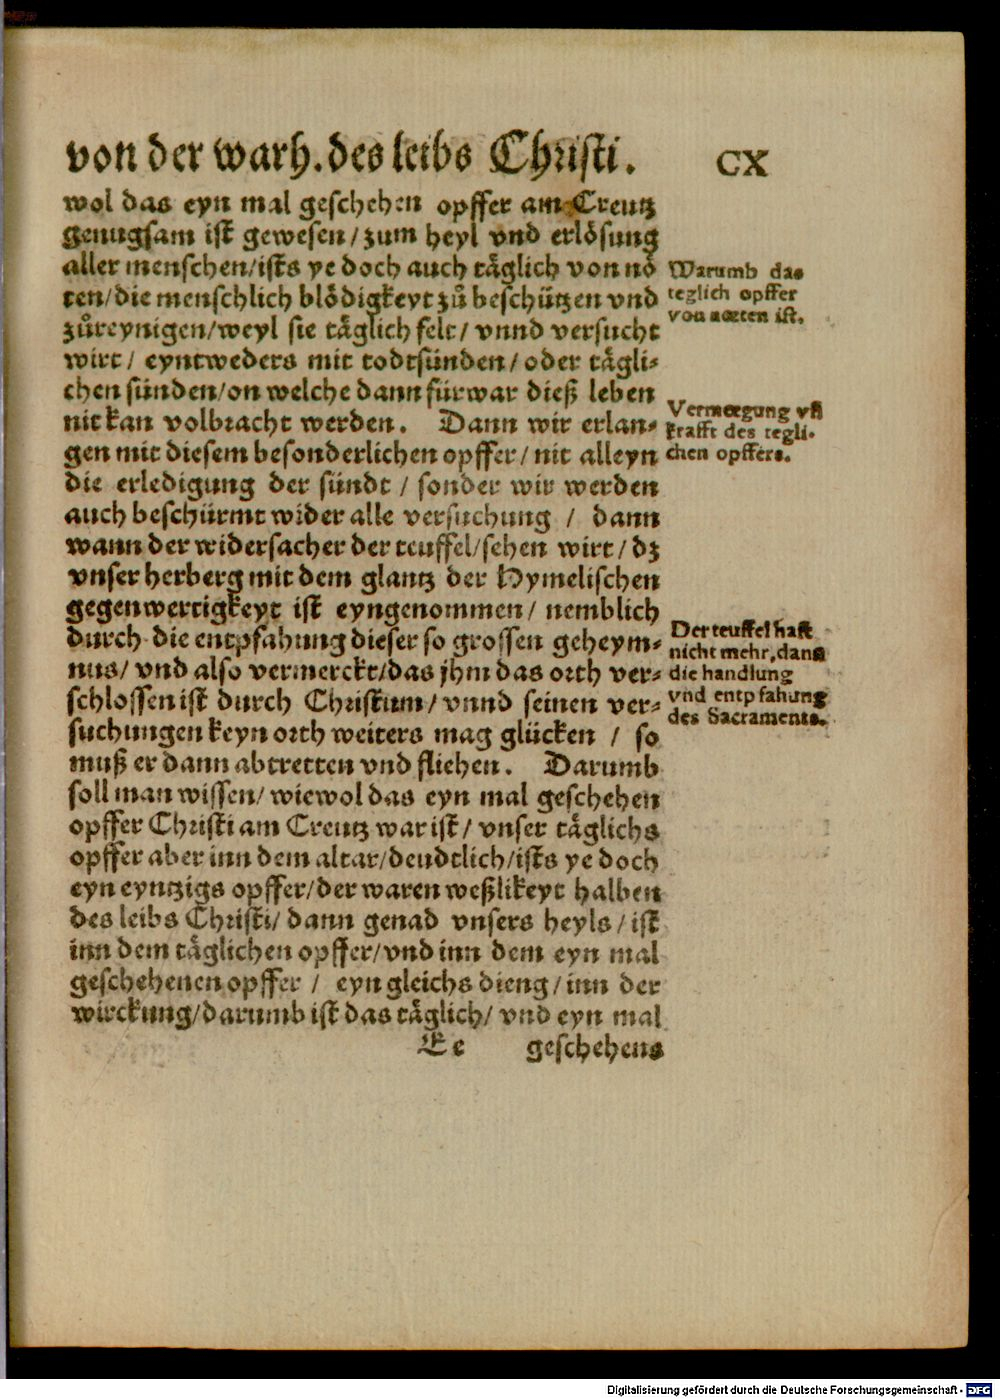 von der warh. des leibs Christi. CX
wol das eyn mal geschehen opffer am Creutz
genugsam ist gewesen / zum heyl vnd erlösung
aller menschen / ists ye doch auch täglich von nö
ten / die menschlich blödigkeyt zů beschützen vnd
zůreynigen / weyl sie täglich felt / vnnd versucht
wirt / eyntweders mit todtsünden / oder tägli-
chen sünden / on welche dann fürwar dieß leben
nit kan volbracht werden. Dann wir erlan-
gen mit diesem besonderlichen opffer / nit alleyn
die erledigung der sündt / sonder wir werden
auch beschürmt wider alle versuchung / dann
wann der widersacher der teuffel / sehen wirt / dz
vnser herberg mit dem glantz der Hymelischen
gegenwertigkeyt ist eyngenommen / nemblich
durch die entpfahung dieser so grossen geheym-
nus / vnd also vermerckt / das jhm das orth ver-
schlossen ist durch Christum / vnnd seinen ver-
suchungen keyn orth weiters mag glücken / so
muß er dann abtretten vnd fliehen. Darumb
soll man wissen / wiewol das eyn mal geschehen
opffer Christi am Creutz war ist / vnser täglichs
opffer aber inn dem altar / deudtlich / ists ye doch
eyn eyntzigs opffer / der waren weßlikeyt halben
des leibs Christi / dann genad vnsers heyls / ist
inn dem täglichen opffer / vnd inn dem eyn mal
geschehenen opffer / eyn gleichs dieng / inn der
wirckung / darumb ist das täglich / vnd eyn mal
Ee geschehens
Warumb das
teglich opffer
von nœten ist.
Vermœgung vñ
krafft des tegli-
chen opffers.
Der teuffel hafft
nicht mehr, dann
die handlung
vnd entpfahung
des Sacraments.
Digitalisierung gefördert durch die Deutsche Forschungsgemeinschaft - DFG